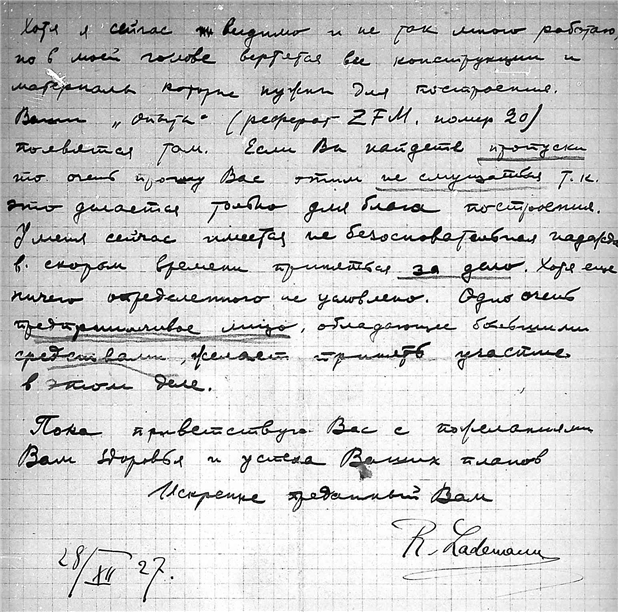 Хотя я сейчас видимо и не так много работаю,
но в моей голове вертятся все конструкции и
материалы которые нужны для построения.
Ваши „опыта“ (реферат ZFM. номер 20)
появятся там. Если Вы найдете пропуски
то очень прошу Вас этим не смущаться т.к.
это делается только для блага построения.
У меня сейчас имеется не безосновательная надежда
в скором времени приняться за дело. Хотя еще
ничего определенного не условлено. Одно очень
предприимчивое лицо, обладающее большими
средствами, желает принять участие
в этом деле.
Пока приветствую Вас с пожеланиями
Вам здоровья и успеха Ваших планов
Искренне преданный Вам
R. Lademann
28/XII 27.